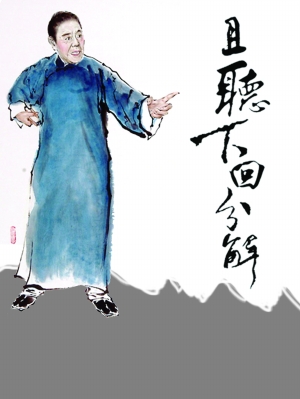 且聽下回分解